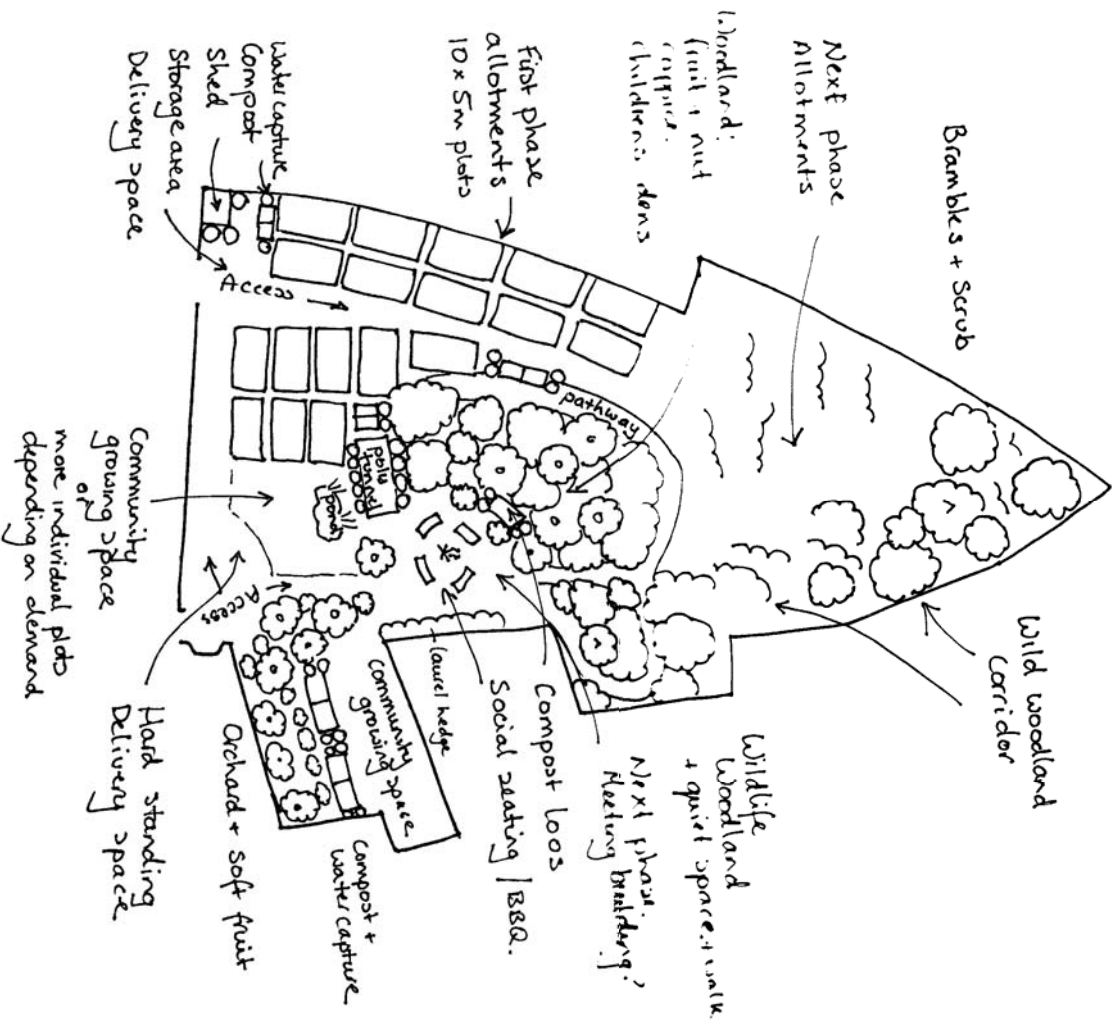 Brambles + Scrub
Next phase
Allotments
Woodland:
fruit + nut
children's dens
First phase
allotments
10 x 5m plots
Water capture
Compost
Shed
Storage area
Delivery space
Access
pathway
poly
tunnel
pond
Community
growing space
or
more individual plots
depending on demand
Access
Hard standing
Delivery space
Orchard + soft fruit
Compost +
water capture
Community
growing space
laurel hedge
Social seating / BBQ.
Compost Loos
Next phase.
Meeting building?
Wildlife
Woodland
+ quiet space + walk
Wild woodland
corridor